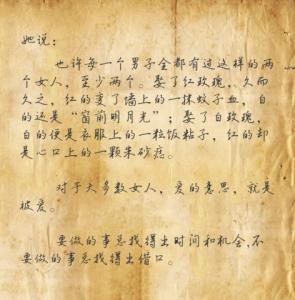 她说：
也许每一个男子全都有过这样的两
个女人，至少两个。娶了红玫瑰，久而
久之，红的变了墙上的一抹蚊子血，白
的还是“窗前明月光”；娶了白玫瑰，
白的便是衣服上的一粒饭粘子，红的却
是心口上的一颗朱砂痣。
对于大多数女人，爱的意思，就是
被爱。
要做的事总找得出时间和机会，不
要做的事总找得出借口。